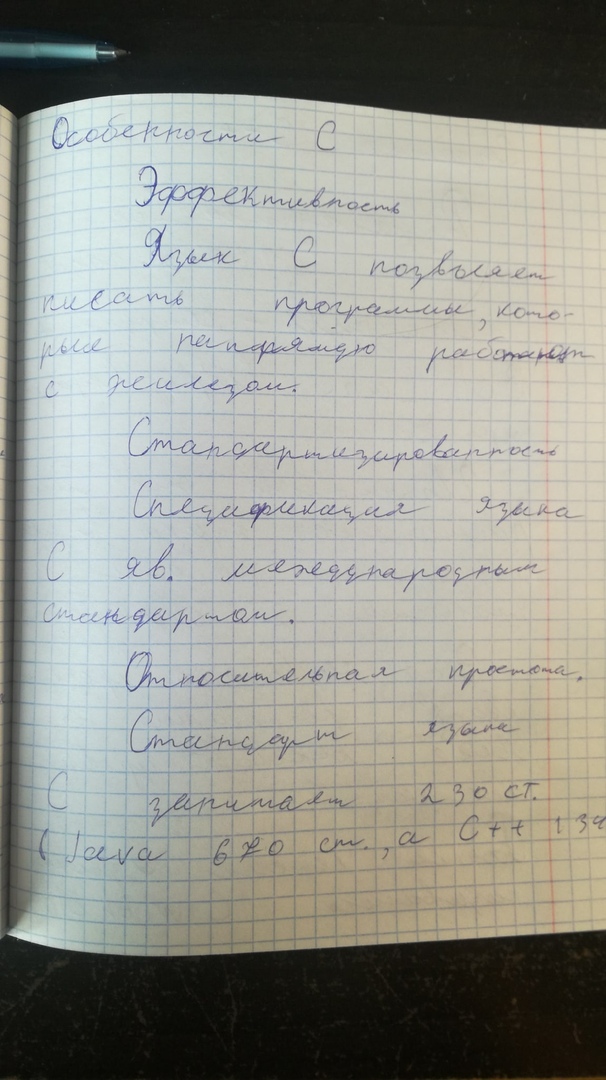 Особенности С
Эффективность
Язык С позволяет
писать программы, кото-
рые напрямую работают
с железом.
Стандартизированность
Спецификация языка
С яв. международным
стандартом.
Относительная простота.
Стандарт языка
С занимает 230 ст.
(Java 670 ст., а С++ 134